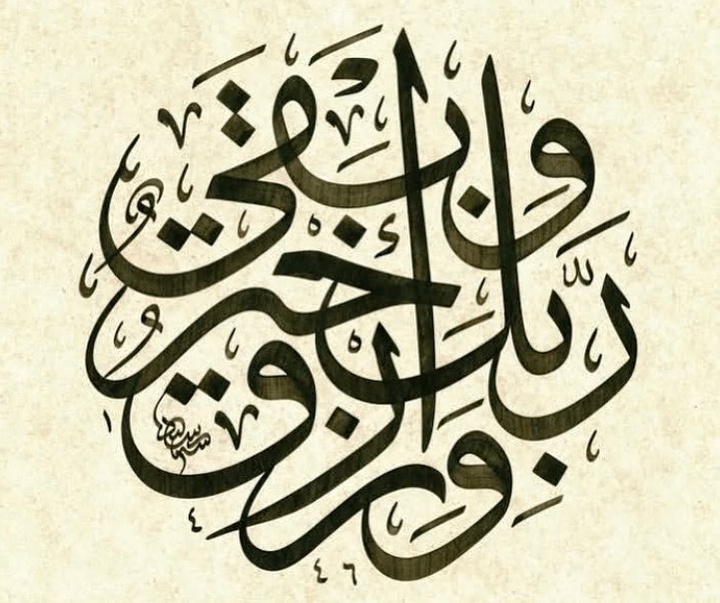 وَرِزْقُ رَبِّكَ خَيْرٌ وَأَبْقَىٰ